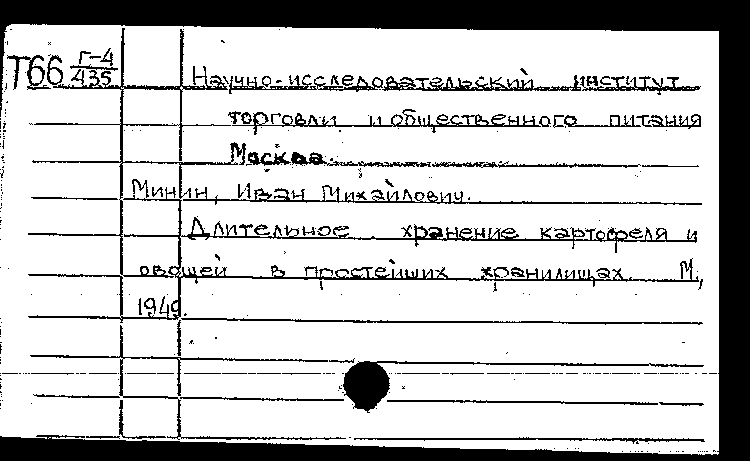 Т66 Г-4/435 Научно-исследовательский институт
торговли и общественного питания
Москва.
Минин, Иван Михайлович.
Длительное хранение картофеля и
овощей в простейших хранилищах. М.,
1949.